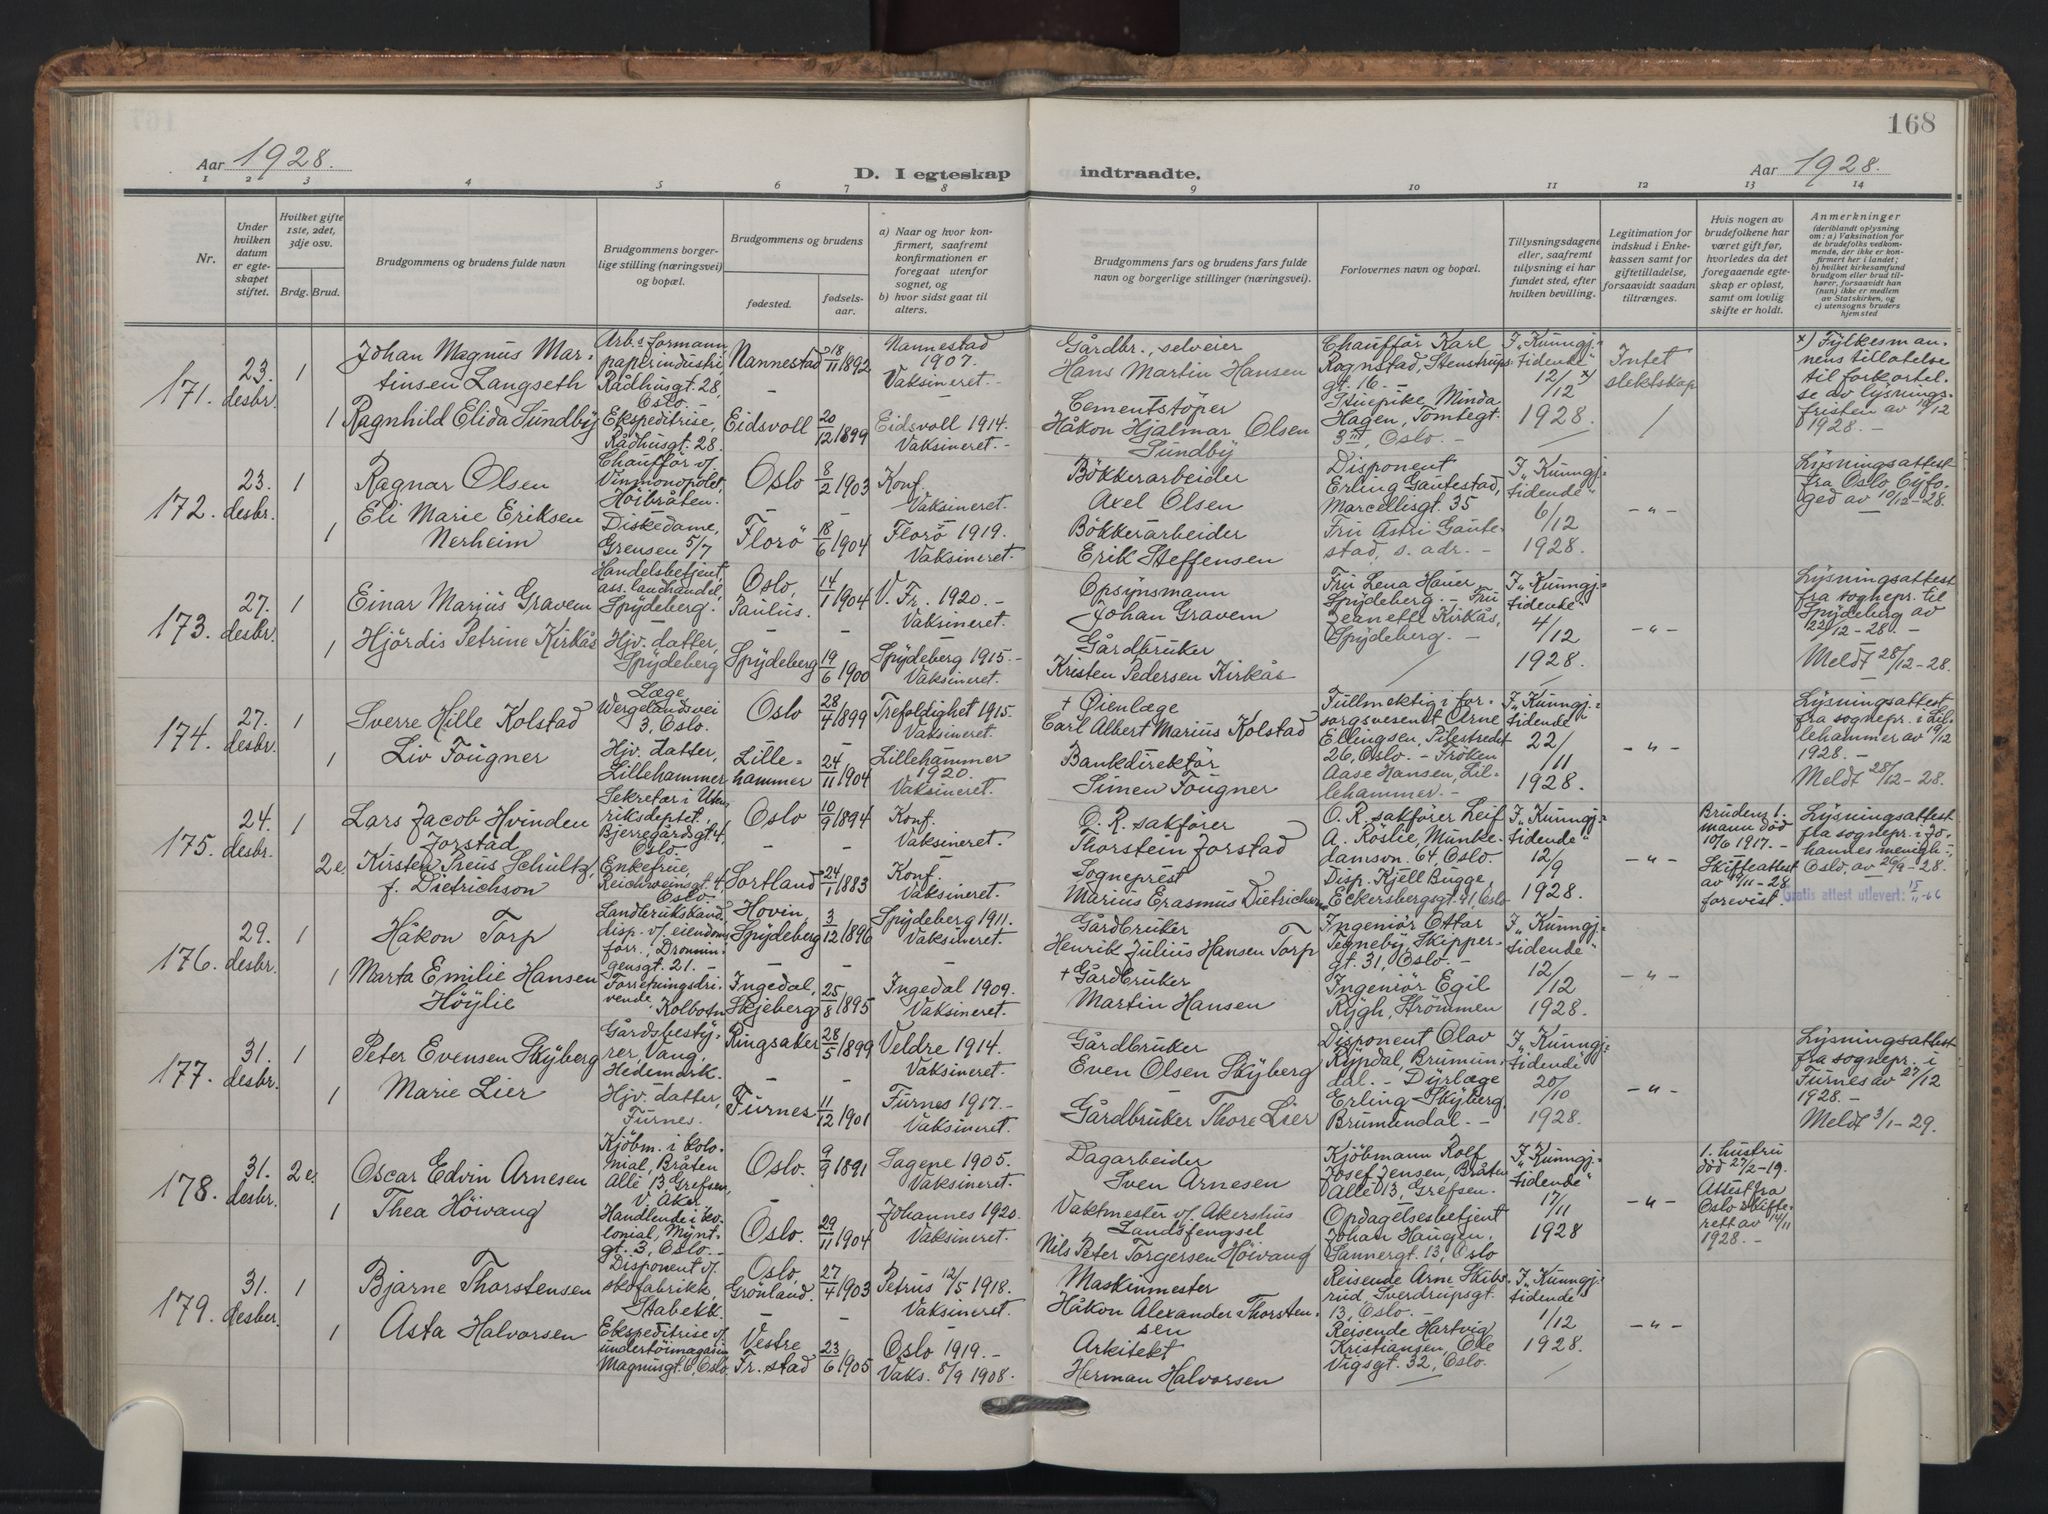 168
Aar 1928.
D. I egteskap indtraadte.
Aar 1928.
1 2 3 4 5 6 7 8 9 10 11 12 13 14
Nr.
Under hvilken datum er egteskapet stiftet.
Hvilket gifte 1ste, 2det, 3dje osv.
Brdg. Brud.
Brudgommens og brudens fulde navn
Brudgommens borgerlige stilling (næringsvei) og bopæl.
Brudgommens og brudens
fødested.
fødselsaar.
a) Naar og hvor konfirmert, saafremt konfirmationen er foregaat utenfor sognet, og
b) hvor sidst gaat til alters.
Brudgommens fars og brudens fars fulde navn og borgerlige stillinger (næringsvei).
Forlovernes navn og bopæl.
Tillysningsdagene eller, saafremt tillysning ei har fundet sted, efter hvilken bevilling.
Legitimation for indskud i Enkekassen samt for giftetilladelse, forsaavidt saadan tiltrænges.
Hvis nogen av brudefolkene har været gift før, hvorledes da det foregaaende egteskap er opløst, samt om lovlig skifte er holdt.
Anmerkninger (deriblandt oplysning om: a) Vaksination for de brudefolks vedkommende, der ikke er konfirmert her i landet; b) hvilket kirkesamfund brudgom eller brud tilhører, forsaavidt han (hun) ikke er medlem av Statskirken, og c) utensogns bruders hjemsted
171. 23. desbr. 1
Johan Magnus Martinsen Langseth
Arb.s formann papirindustri Rådhusgt. 28, Oslo. -
Nannestad 18/11 1892
Nannestad 1907. Vaksineret. -
Gårdbr., selveier Hans Martin Hansen
Chauffør Karl Rognstad, Stenstrupsgt. 16. -
I "Kunngj. tidende" 12/12 x) 1928.
Intet slektskap
x) Fylkesmannens tillatelse til forkortelse av lysningsfristen av 19/12 1928. -
1 Ragnhild Elida Sundby
Ekspeditrise, Rådhusgt. 28.
Eidsvoll 20/12 1899
Eidsvoll 1914. Vaksineret. -
Cementstöper Håkon Hjalmar Olsen Sundby
Stuepike, Minda Hagen, Tomtegt. 3 III, Oslo. -
172. 23. desbr. 1
Ragnar Olsen
Chauffør v/ Vinmonopolet, Höibråten.
Oslo 8/2 1903
Konf. Vaksineret.
Bökkerarbeider Axel Olsen
Disponent Erling Gautestad, Marcellisgt. 35
I "Kunngj. tidende" 6/12 1928.
- " -
Lysningsattest fra Oslo Byfoged av 10/12-28.
1 Eli Marie Eriksen Nerheim
Diskedame, Grensen 5/7
Florö 18/6 1904
Florö 1919. Vaksineret.
Bökkerarbeider Erik Steffensen
Fru Astri Gautestad, s. adr. -
173. 27. desbr. 1
Einar Marius Gravem
Handelsbetjent, ass. landhandel, Spydeberg.
Oslo, Paulus. 14/1 1904
V. Fr. 1920. - Vaksineret.
Opsynsmann Johan Gravem
Fru Lena Hauer Spydeberg. - Fru Jeanette Kirkås, Spydeberg. -
I "Kunngj. tidende" 4/12 1928.
- " -
Lysningsattest fra sognepr. til Spydeberg av 22/12-28. -
Meldt 28/12-28.
1 Hjördis Petrine Kirkås
Hjv. datter, Spydeberg
Spydeberg 19/6 1900
Spydeberg 1915. - Vaksineret.
Gårdbruker Kristen Pedersen Kirkås
174. 27. desbr. 1
Sverre Hille Kolstad
Læge, Wergelandsvei 3, Oslo.
Oslo 28/4 1899
Trefoldighet 1915. Vaksineret.
+ Øienlæge Carl Albert Marius Kolstad
Fullmektig i forsorgsvesenet Arne Ellingsen, Pilestredet 26, Oslo. - Fröken Aase Hansen, Lillehammer. -
I "Kunngj. tidende" 22/11 1928.
- " -
Lysningsattest fra sognepr. i Lillehammer av 19/12 1928. -
Meldt 28/12-28.
1 Liv Fougner
Hjv. datter, Lillehammer
Lillehammer 24/11 1904
Lillehammer 1920. Vaksineret.
Bankdirektör Simen Fougner
175. 24. desbr. 1
Lars Jacob Hvinden Jorstad
Sekretær i Utenriksdeptet, Bjerregårdsgt 4, Oslo
Oslo 10/9 1894
Konf. Vaksineret.
O. R. sakförer Thorstein Jorstad
O. R. sakförer Leif A. Röslie, Munkedamsvn. 64 Oslo.
I "Kunngj. tidende" 12/9 1928.
- " -
Brudens 1. mann död 10/6 1917. - Skifteattest av 19/11-28 forevist.
Lysningsattest fra sognepr. i Johannes menigh., Oslo, av 26/9-28.
Gratis attest utlevert: 15/11-66
2e. Kirsten Preus Schultz, f. Dietrichson
Enkefrue, Reichweinsgt. 4, Oslo
Sortland 24/1 1883
Konf. Vaksineret.
Sogneprest Marius Erasmus Dietrichson
Disp. Kjell Bugge, Eckersbergsgt. 41, Oslo
176. 29. desbr. 1
Håkon Torp
Landbrukskand. disp. v/ eiendomsforr., Dronningensgt. 21. -
Hovin, Spydeberg 3/12 1896
Spydeberg 1911. Vaksineret.
Gårdbruker Henrik Julius Hansen Torp
Ingeniör Ottar Tegneby, Skippergt. 31, Oslo. -
I "Kunngj. tidende" 12/12 1928.
- " -
1 Marta Emilie Hansen Höylie
Forretningsdrivende, Kolbotn
Ingedal, Skjeberg 25/8 1895
Ingedal 1909. Vaksineret.
+ Gårdbruker Martin Hansen
Ingeniör Egil Rygh, Strömmen
177. 31. desbr. 1
Peter Evensen Skyberg
Gårdsbestyrer, Vang, Hedemark.
Ringsaker 28/5 1899
Veldre 1914. Vaksineret.
Gårdbruker Even Olsen Skyberg
Disponent Olav Rypdal Brumunddal. - Dyrlæge Erling Skyberg, Brumunddal. -
I "Kunngj. tidende" 20/10 1928.
- " -
Lysningsattest fra sognepr. i Furnes av 27/12 1928. -
Meldt 3/1-29.
1 Marie Lier
Hjv. datter, Furnes.
Furnes 11/12 1901
Furnes 1917. - Vaksineret.
Gårdbruker Thore Lier
178. 31. desbr. 2e.
Oscar Edvin Arnesen
Kjöbm. i kolonial, Bråten Alle 13 Grefsen, V. Aker
Oslo. 9/9 1891
Sagene 1905. Vaksineret.
Dagarbeider Sven Arnesen
Kjöbmann Rolf Josef Jensen, Bråten Alle 13, Grefsen.
I "Kunngj. tidende" 17/11 1928
- " -
1. hustru död 27/2-19. Attest fra Oslo skifterett av 14/11 1928. -
1 Thea Höivang
Handlende i kolonial, Myntgt. 3, Oslo. -
Oslo. 29/11 1904
Johannes 1920. Vaksineret.
Vaktmester v/ Akershus Landsfengsel Nils Peter Torgersen Höivang
Opdagelsesbetjent Johan Haugen, Sannergt. 13, Oslo
179. 31. desber. 1
Bjarne Thorstensen
Disponent v/ skofabrikk, Stabekk.
Oslo, Grönland. 27/4 1903
Petrus 12/5 1918. Vaksineret.
Maskinmester Håkon Alexander Thorstensen
Reisende Arne Skibsrud, Sverdrupsgt. 13, Oslo. -
I "Kunngj. tidende" 1/12 1928.
- " -
1 Asta Halvorsen
Ekspeditrise v/ undertöimagasin Magnusgt. 6, Oslo
Vestre Fr.stad 23/6 1905
Oslo 1919. - Vaks. 8/9 1908.
Arkitekt Herman Halvorsen
Reisende Hartvig Kristiansen, Ole Vigsgt. 32, Oslo.